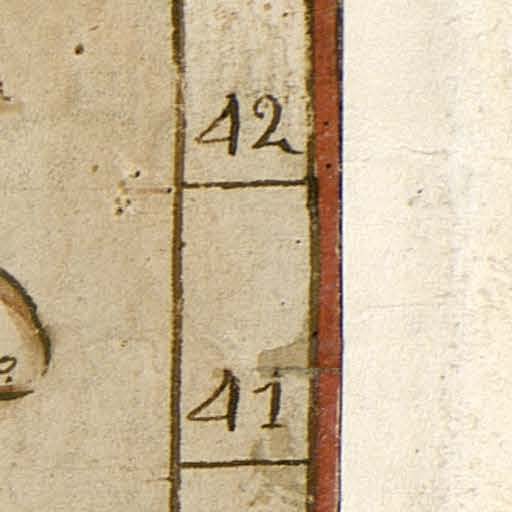 42
41